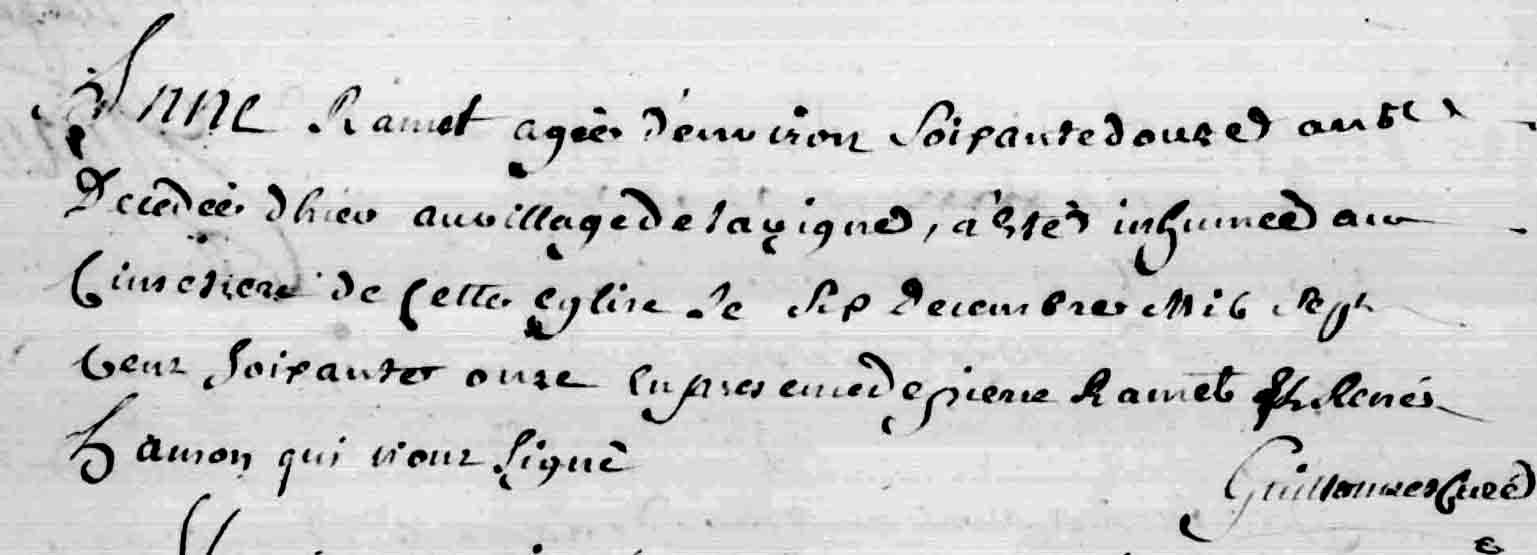 Anne Ramet agée denviron Soixante douze ans
Decedée dhier au village de la vigne, a esté inhumée au
Cimetiere de Cette eglise le Six Decembre Mil Sept
Cent Soixante onze En presence de pierre Ramet Et René
hamon qui n'ont Signé
Curé